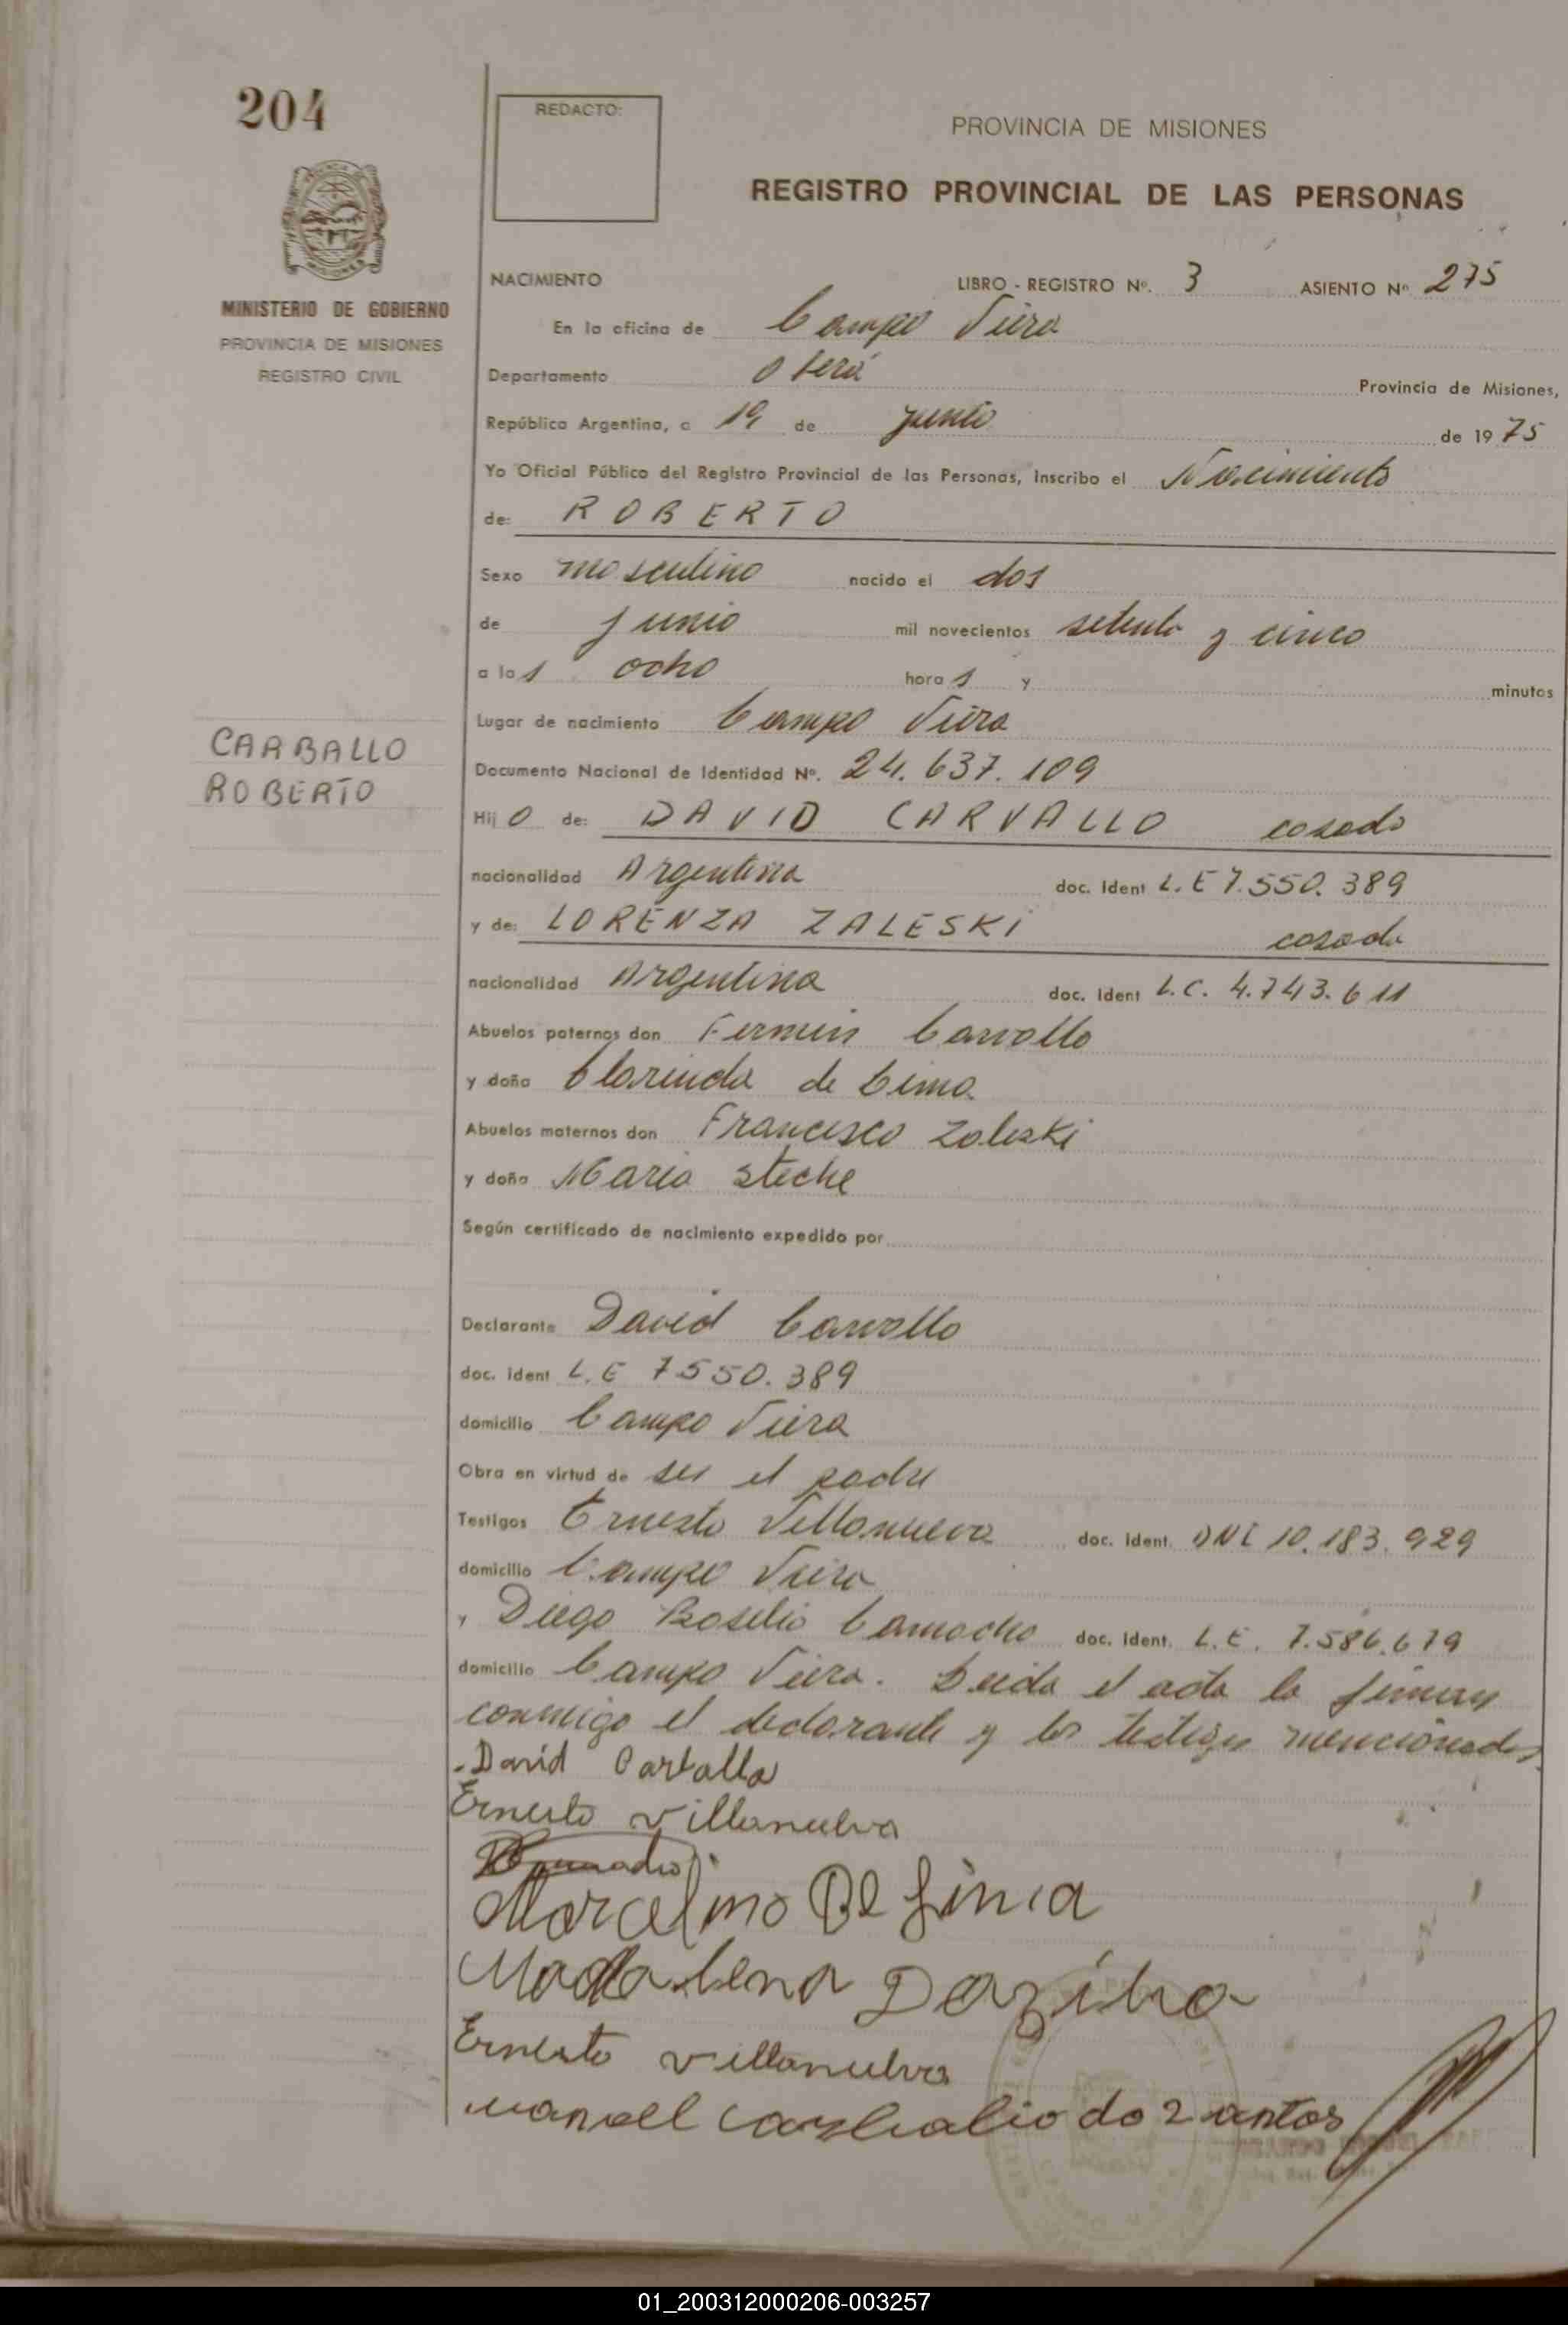 204
REDACTO:
PROVINCIA DE MISIONES
REGISTRO PROVINCIAL DE LAS PERSONAS
MINISTERIO DE GOBIERNO
PROVINCIA DE MISIONES
REGISTRO CIVIL
NACIMIENTO LIBRO - REGISTRO Nº. 3 ASIENTO Nº 275
En la oficina de Campo Viera
Departamento Oberá Provincia de Misiones,
República Argentina, a 19 de junio de 1975
Yo Oficial Público del Registro Provincial de las Personas, Inscribo el Nacimiento
de: ROBERTO
Sexo masculino nacido el dos
de junio mil novecientos setenta y cinco
a las ocho horas y minutos
Lugar de nacimiento Campo Viera
CARBALLO
ROBERTO
Documento Nacional de Identidad Nº. 24.637.109
Hijo de: DAVID CARVALLO casado
nacionalidad Argentina doc. Ident L.E 7.550.389
y de: LORENZA ZALESKI casada
nacionalidad Argentina doc. Ident L.C. 4.743.611
Abuelos paternos don Fermin Carvallo
y doña Clarinda de Lima
Abuelos maternos don Francisco Zaleski
y doña Maria Steche
Según certificado de nacimiento expedido por
Declarante David Carvallo
doc. Ident L.E 7550.389
domicilio Campo Viera
Obra en virtud de ser el padre
Testigos Ernesto Villanueva doc. Ident. DNI 10.183.929
domicilio Campo Viera
y Diego Basilio Camacho doc. Ident. L.E. 7.586.679
domicilio Campo Viera. Leida el acta la firman
conmigo el declarante y los testigos mencionados
David Carballo
Ernesto Villanueva
Marcelino De Lima
Madalena
Ernesto Villanueva
01_200312000206-003257